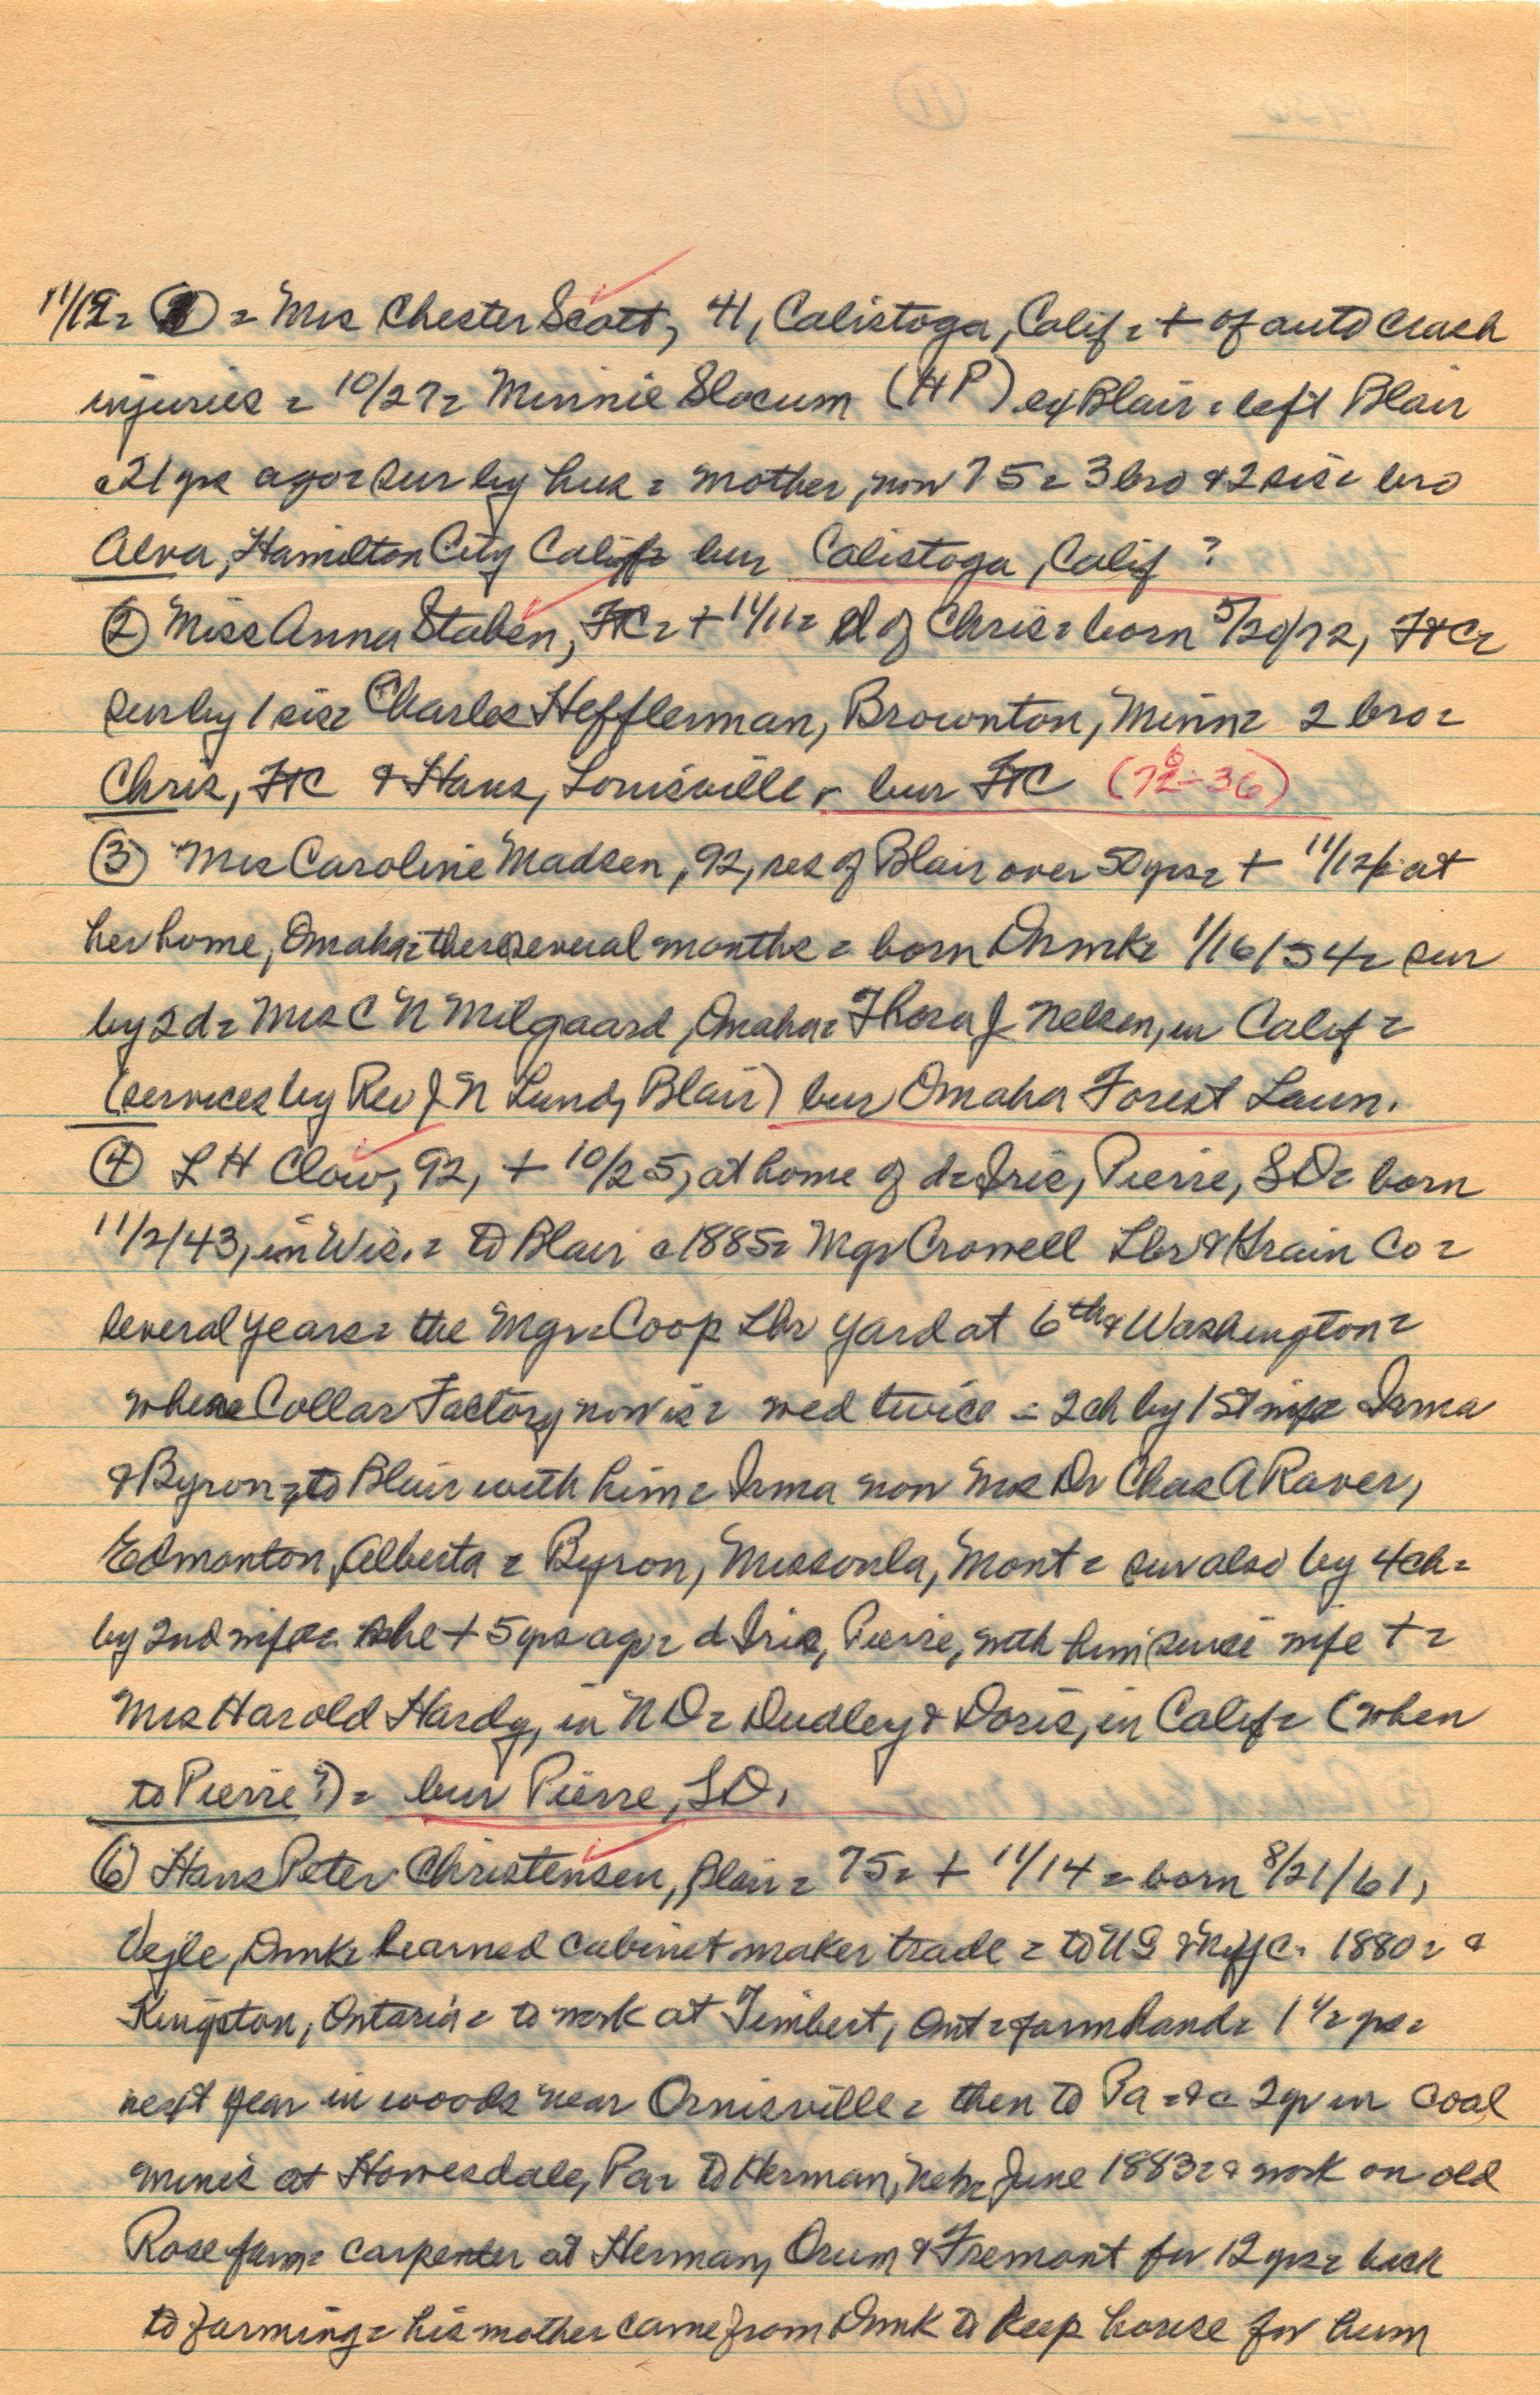 11/12= ① = Mrs Chester Scott, 41, Calistoga, Calif = + of auto crash
injuries = 10/27= Minnie Slocum (HP) ex Blair = left Blair
c21 yrs ago = sur by hus = mother, now 75 = 3 bro & 2 sis = bro
Alva, Hamilton City Calif = bur Calistoga, Calif ?
② Miss Anna Staben, FtC = + 11/11 = d of Chris = born 5/20/72, FtC =
sur by 1 sis = Charles Heffleman, Brownton, Minn = 2 bro =
Chris, FtC & Hans, Louisville, bur FtC (72-36)
③ Mrs Caroline Madsen, 92, res of Blair over 50 yrs = + 11/12 at
her home, Omaha = there several months = born Dnmk = 1/16/54 = sur
by 2d = Mrs C N Milgaard, Omaha = Thora J Nelsen, in Calif =
(services by Rev J N Lund, Blair) bur Omaha Forest Lawn.
④ L H Clow, 92, + 10/25, at home of d = Iris, Pierre, SD = born
11/2/43, in Wis. = to Blair c1885 = Mgr Crowell Lbr & Grain Co =
several years = the Mgr = Coop Lbr yard at 6th & Washington =
where Collar Factory now is = wed twice = 2ch by 1st wife Irma
& Byron = to Blair with him = Irma now Mrs Dr Chas A Raver,
Edmonton, Alberta = Byron, Missoula, Mont = sur also by 4ch =
by 2nd wife = she + 5 yrs ago = d Iris, Pierre, with him since wife + =
Mrs Harold Hardy, in ND = Dudley & Doris, in Calif = (when
to Pierre ?) = bur Pierre, SD.
⑥ Hans Peter Christensen, Blair = 75 = + 11/14 = born 8/21/61,
Vejle, Dnmk = learned cabinet maker trade = to US & NYC. 1880 = &
Kingston, Ontario = to work at Timbert, Ont = farmhand = 1 1/2 yrs =
next year in woods near Ornisville = then to Pa = & c 2 yr in coal
mines at Honesdale, Pa = to Herman, Neb = June 1883 = & work on old
Rose farm = carpenter at Herman, Orum & Fremont for 12 yrs = back
to farming = his mother came from Dnmk to keep house for him